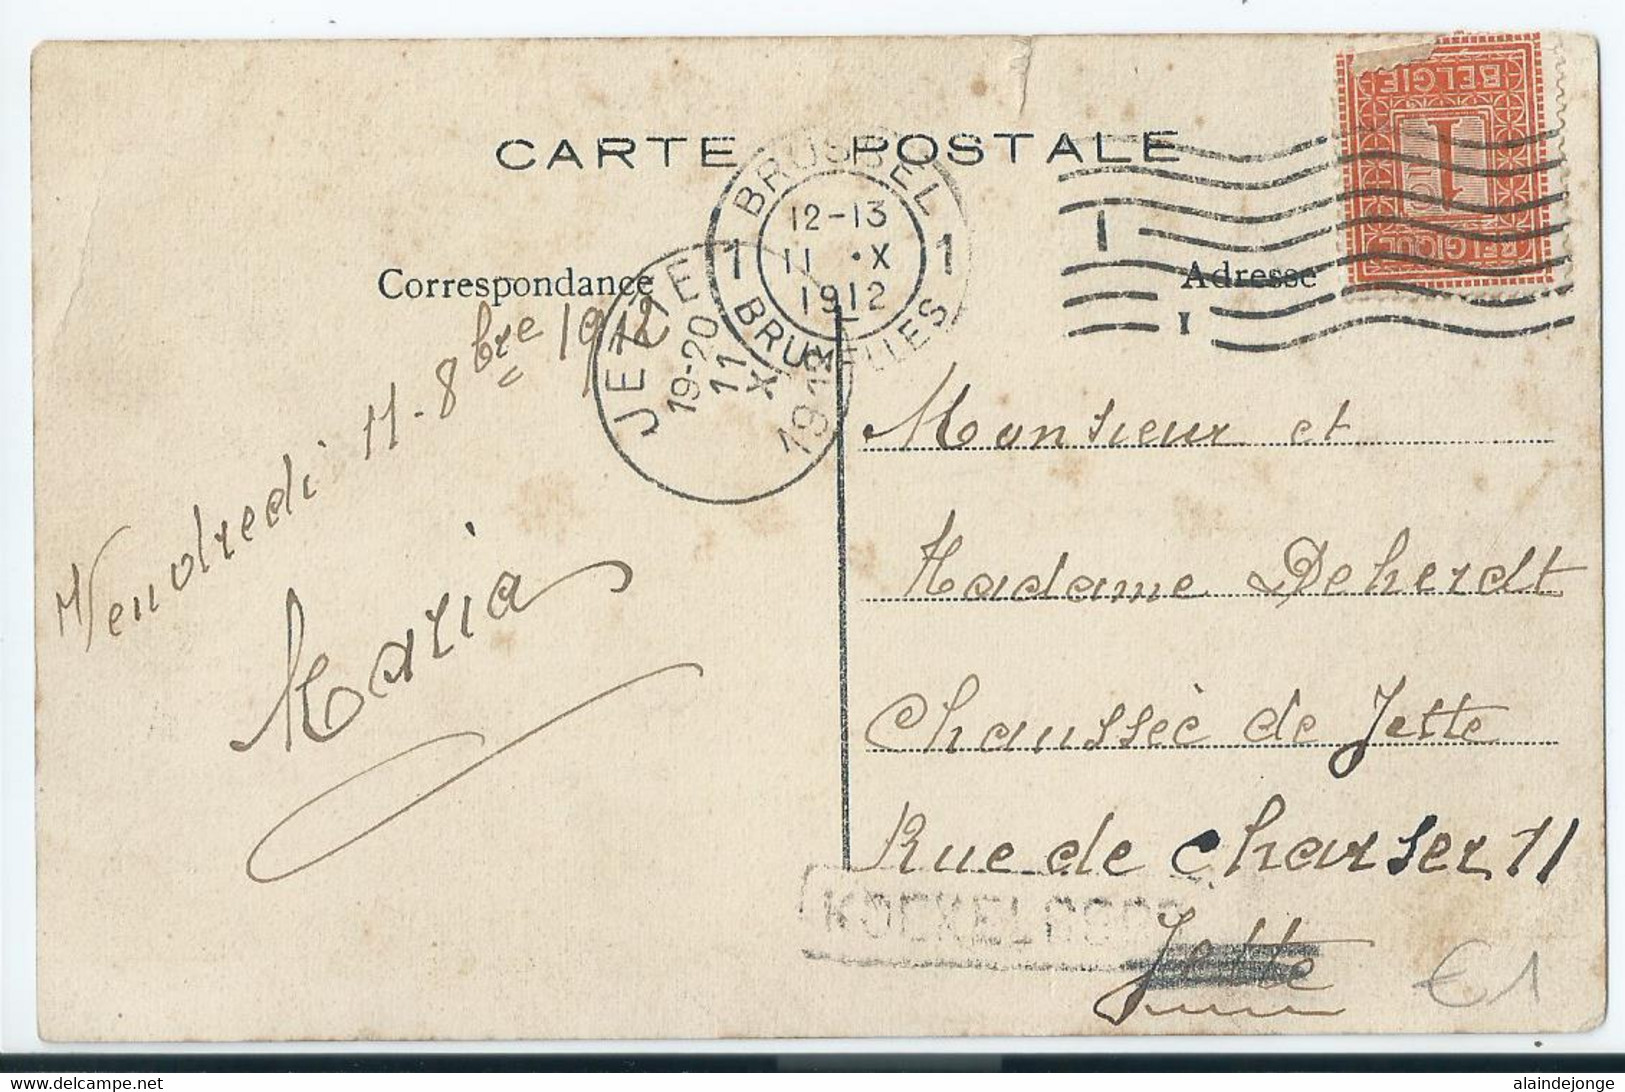 CARTE POSTALE
Correspondance
Adresse
BELGIE
1
BELGIQUE BELGIQUE
BRUSSEL
12-13
11 · X
1912
1 1
BRUXELLES
1
1
JETTE
19-20
11
X
1912
Vendredi 11-8bre 1912
Maria
Monsieur et
Madame Deherdt
Chaussèe de Jette
Rue de Charser 11
Jette
KOEKELBERG
€1
alaindejonge